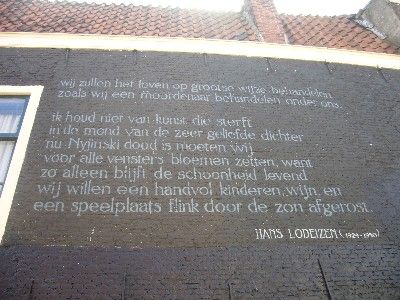 wij zullen het leven op grootse wijze behandelen
zoals wij een moordenaar behandelen onder ons.
ik houd niet van kunst die sterft
in de mond van de zeer geliefde dichter
nu Nyjinski dood is moeten wij
voor alle vensters bloemen zetten, want
zo alleen blijft de schoonheid levend
wij willen een handvol kinderen, wijn en
een speelplaats flink door de zon afgerost.
HANS LODEIZEN (1924-1950)